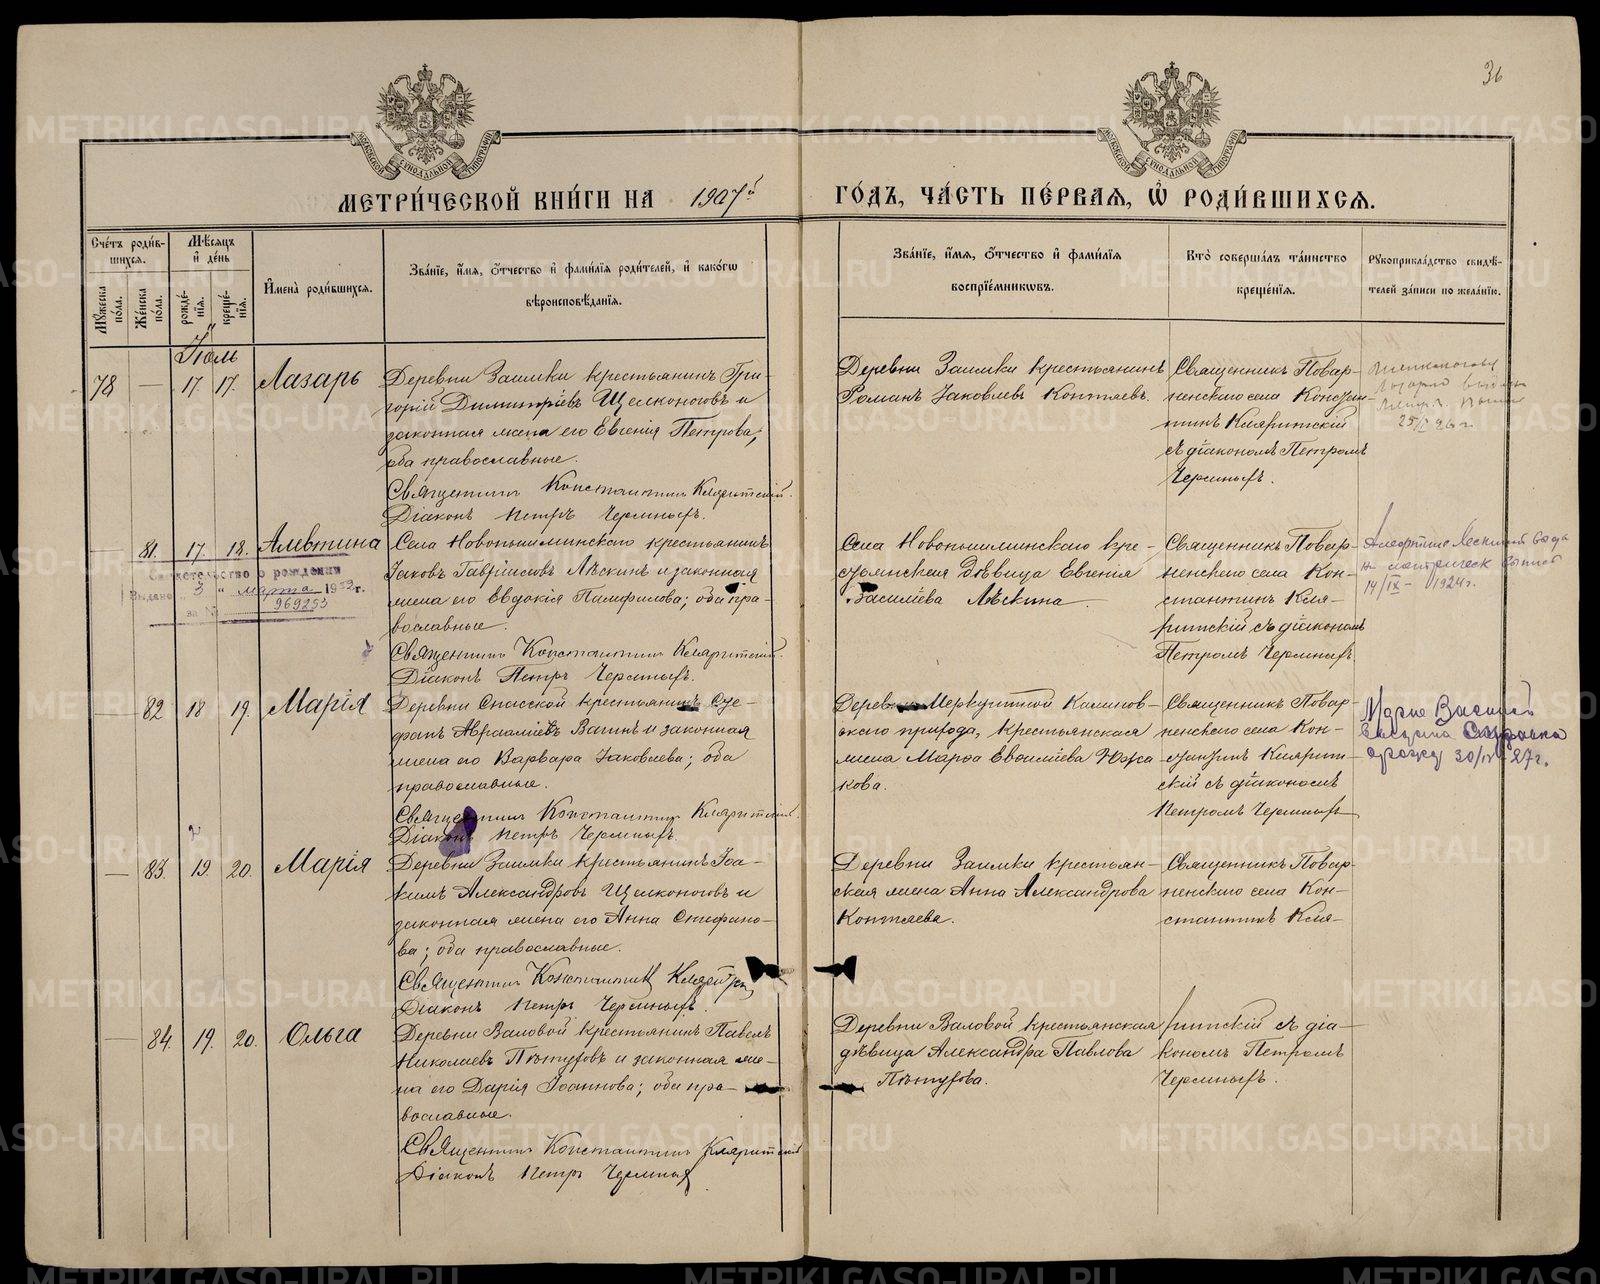 36
МЕТРИ́ЧЕСКОЙ КНИ́ГИ НА 1907й ГО́ДЪ, ЧА́СТЬ ПЕ́РВАЯ, Ѡ РОДИ́ВШИХСЯ.
Сче́тъ роди́в-
шихся.
Му́жеска по́ла.
Же́нска по́ла.
Мѣ́сяцъ
и де́нь
рожде́-
нія.
креще́-
нія.
Имена̀ роди́вшихся.
Зва́ніе, и́мя, о́тчество и фами́лія роди́телей, и како́гѡ
вѣроисповѣ́данія.
Зва́ніе, и́мя, о́тчество и фами́лія
воспріе́мниковъ.
Кто̀ соверша́лъ та́инство
креще́нія.
Рукоприкла́дство свидѣ́-
телей за́писи по жела́нію.
Іюль
78 — 17. 17. Лазарь
Деревни Заимки крестьянинъ Гри-
горій Димитріевъ Щелконоговъ и
законная жена его Евгенія Петрова;
оба православные.
Священникъ Константинъ Кляритскій.
Діаконъ Петръ Черемныхъ.
Деревни Заимки крестьянинъ
Романъ Іаковлевъ Коптяевъ.
Священникъ Повар-
ненскаго села Констан-
тинъ Кляритскій
съ діакономъ Петромъ
Черемныхъ.
25/I 26 г.
— 81. 17. 18. Алевтина
Свидетельство о рождении
Выдано „3“ марта 1953 г.
за № 969253
Села Новопышминскаго крестьянинъ
Іаковъ Гавріиловъ Лѣскинъ и законная
жена его Евдокія Памфилова; оба пра-
вославные.
Священникъ Константинъ Кляритскій.
Діаконъ Петръ Черемныхъ.
Села Новопышминскаго кре-
стьянская дѣвица Евгенія
Василіева Лѣскина.
Священникъ Повар-
ненскаго села Кон-
стантинъ Кля-
ритскій съ діакономъ
Петромъ Черемныхъ.
14/IX – 1924 г.
— 82 18 19. Марія
Деревни Спасской крестьянинъ Сте-
фанъ Авраамiевъ Вагинъ и законная
жена его Варвара Іаковлева; оба
православные.
Священникъ Константинъ Кляритскій.
Діаконъ Петръ Черемныхъ.
Деревни Меркушиной Камышлов-
скаго прихода, крестьянская
жена Марѳа Евѳиміева Южа-
кова.
Священникъ Повар-
ненскаго села Кон-
стантинъ Клярит-
скій съ діакономъ
Петромъ Черемныхъ
30/IV 27 г.
— 83. 19. 20. Марія
Деревни Заимки крестьянинъ Іоа-
кимъ Александровъ Щелконоговъ и
законная жена его Анна Стефано-
ва; оба православные.
Священникъ Константинъ Кляритскій
Діаконъ Петръ Черемныхъ.
Деревни Заимки крестьян-
ская жена Анна Александрова
Коптяева.
Священникъ Повар-
ненскаго села Кон-
стантинъ Кля-
— 84. 19. 20. Ольга
Деревни Валовой крестьянинъ Павелъ
Николаевъ Пѣтуховъ и законная же-
на его Дарія Іоаннова; оба пра-
вославные.
Священникъ Константинъ Кляритскій
Діаконъ Петръ Черемныхъ
Деревни Валовой крестьянская
дѣвица Александра Павлова
Пѣтухова.
ритскій съ діа-
кономъ Петромъ
Черемныхъ.
METRIKI.GASO-URAL.RU